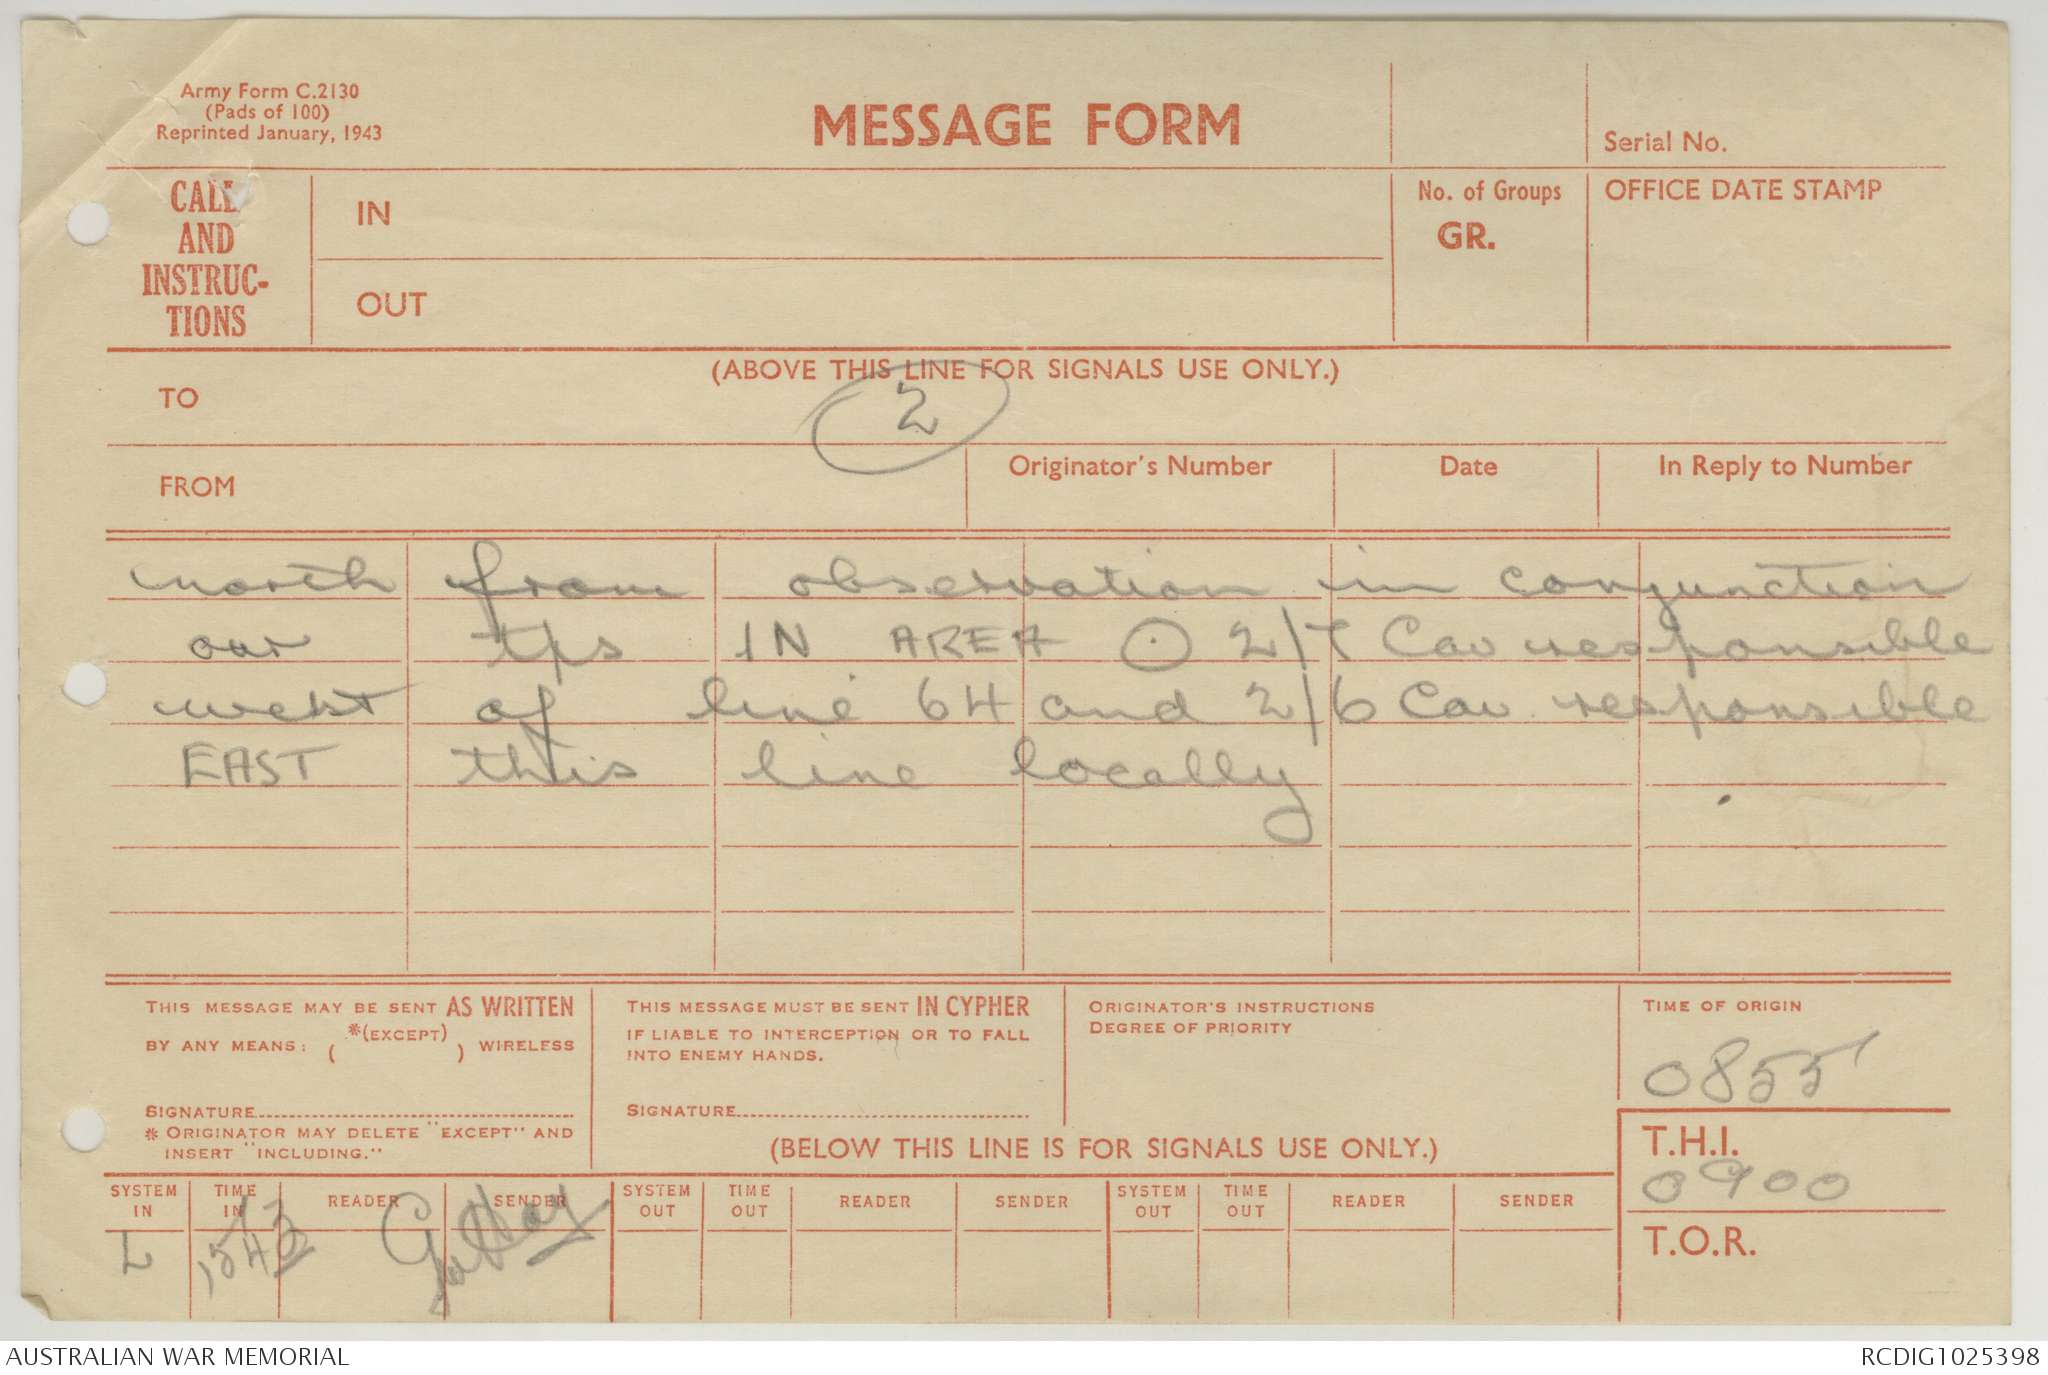 Army Form C.2130
(Pads of 100)
Reprinted January, 1943
MESSAGE FORM
Serial No.
CALL
AND
INSTRUC-
TIONS
IN
OUT
No. of Groups
GR.
OFFICE DATE STAMP
(ABOVE THIS LINE FOR SIGNALS USE ONLY.)
TO
2
FROM
Originator's Number
Date
In Reply to Number
north from observation in conjunction
our tps IN AREA ⊙ 2/7 Cav responsible
west of line 64 and 2/6 Cav responsible
EAST this line locally
THIS MESSAGE MAY BE SENT AS WRITTEN
BY ANY MEANS: ( *(EXCEPT) ) WIRELESS
SIGNATURE
* ORIGINATOR MAY DELETE "EXCEPT" AND
INSERT "INCLUDING."
THIS MESSAGE MUST BE SENT IN CYPHER
IF LIABLE TO INTERCEPTION OR TO FALL
INTO ENEMY HANDS.
SIGNATURE
ORIGINATOR'S INSTRUCTIONS
DEGREE OF PRIORITY
TIME OF ORIGIN
0855
(BELOW THIS LINE IS FOR SIGNALS USE ONLY.)
T.H.I.
0900
T.O.R.
SYSTEM IN
TIME IN
READER
SENDER
SYSTEM OUT
TIME OUT
READER
SENDER
SYSTEM OUT
TIME OUT
READER
SENDER
L
AUSTRALIAN WAR MEMORIAL
RCDIG1025398